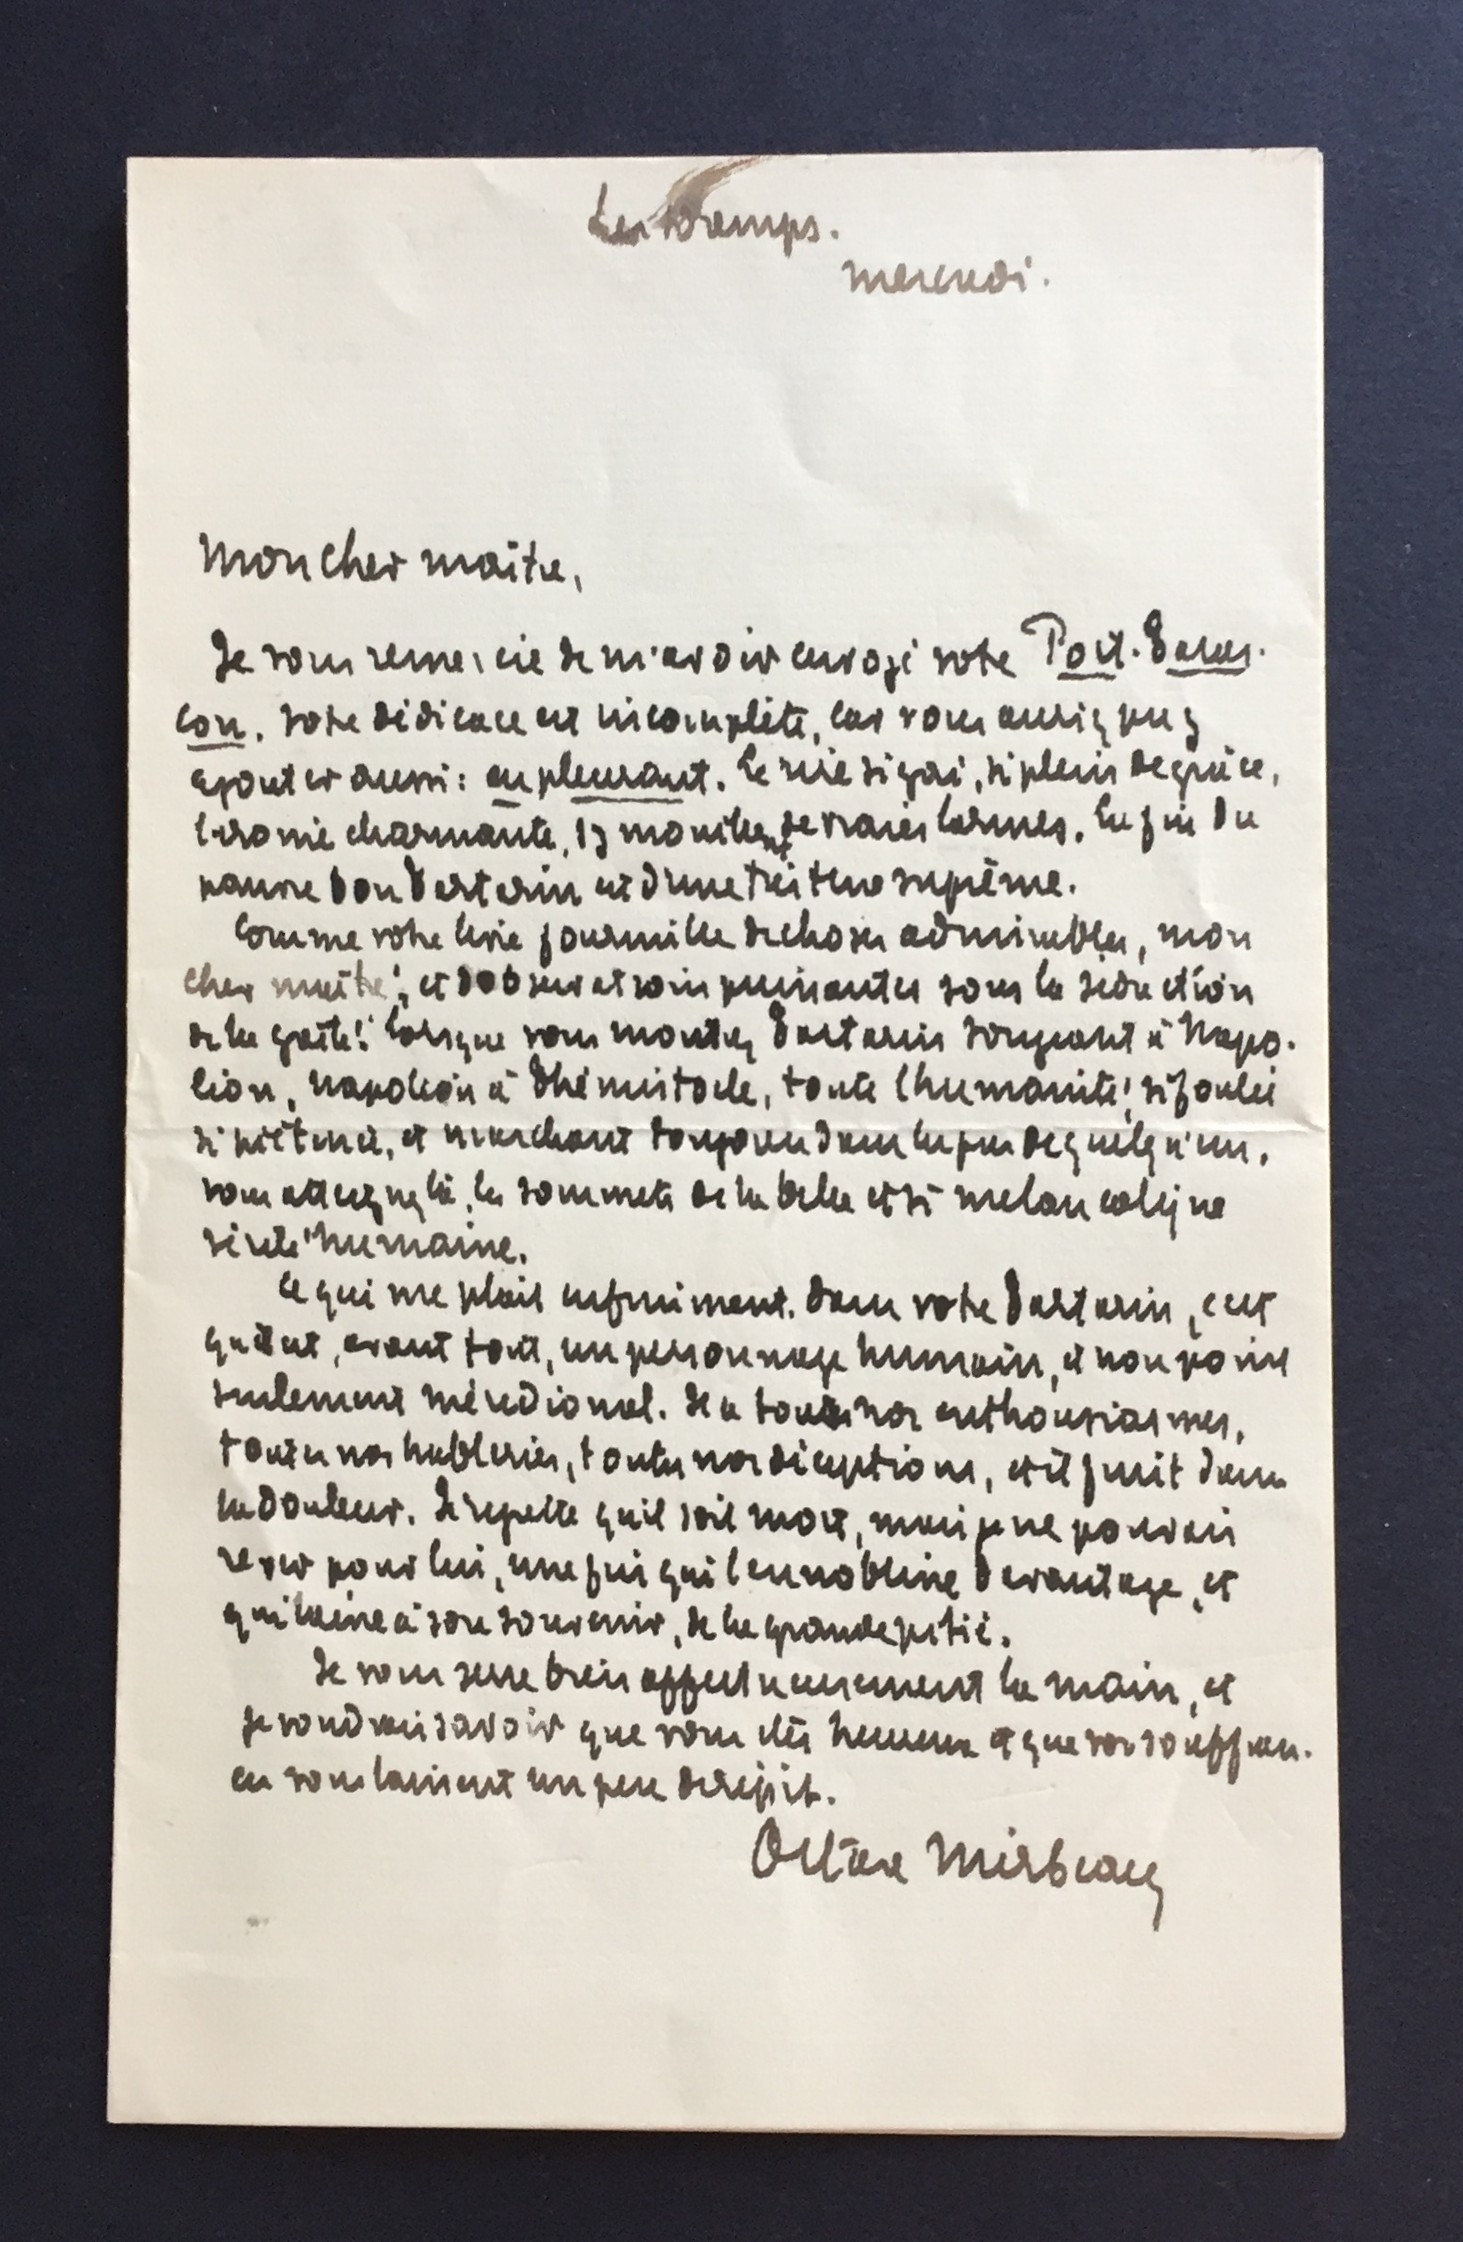 Les Damps.
mercredi.
Mon cher maître,
Je vous remercie de m'avoir envoyé votre Port-Taras-
con. Votre dédicace est incomplète, car vous auriez pu y
ajouter aussi : en pleurant. Ce rire si gai, si plein de grâce,
l'ironie charmante, s'y mouillent de vraies larmes. La fin du
pauvre Don Tartarin est d'une tristesse suprême.
Comme votre livre fourmille de choses admirables, mon
cher maître !, et d'observations puissantes sous la séduction
de la gaîté ! Lorsque vous montrez Tartarin songeant à Napo-
léon, Napoléon à Thémistocle, toute l'humanité, si foulée
si piétinée, et marchant toujours dans les pas de quelqu'un,
vous atteignez là, les sommets de la belle et si mélancolique
vérité humaine.
Ce qui me plaît infiniment dans votre Tartarin, c'est
qu'il est, avant tout, un personnage humain, et non point
seulement méridional. Il a tous nos enthousiasmes,
toutes nos hâbleries, toutes nos déceptions, et il finit dans
la douleur. Je regrette qu'il soit mort, mais je ne pouvais
rêver pour lui, une fin qui l'ennoblisse davantage, et
qui laisse à son souvenir, de la grande pitié.
Je vous serre bien affectueusement la main, et
je voudrais savoir que vous êtes heureux et que vos souffran-
ces vous laissent un peu de répit.
Octave Mirbeau